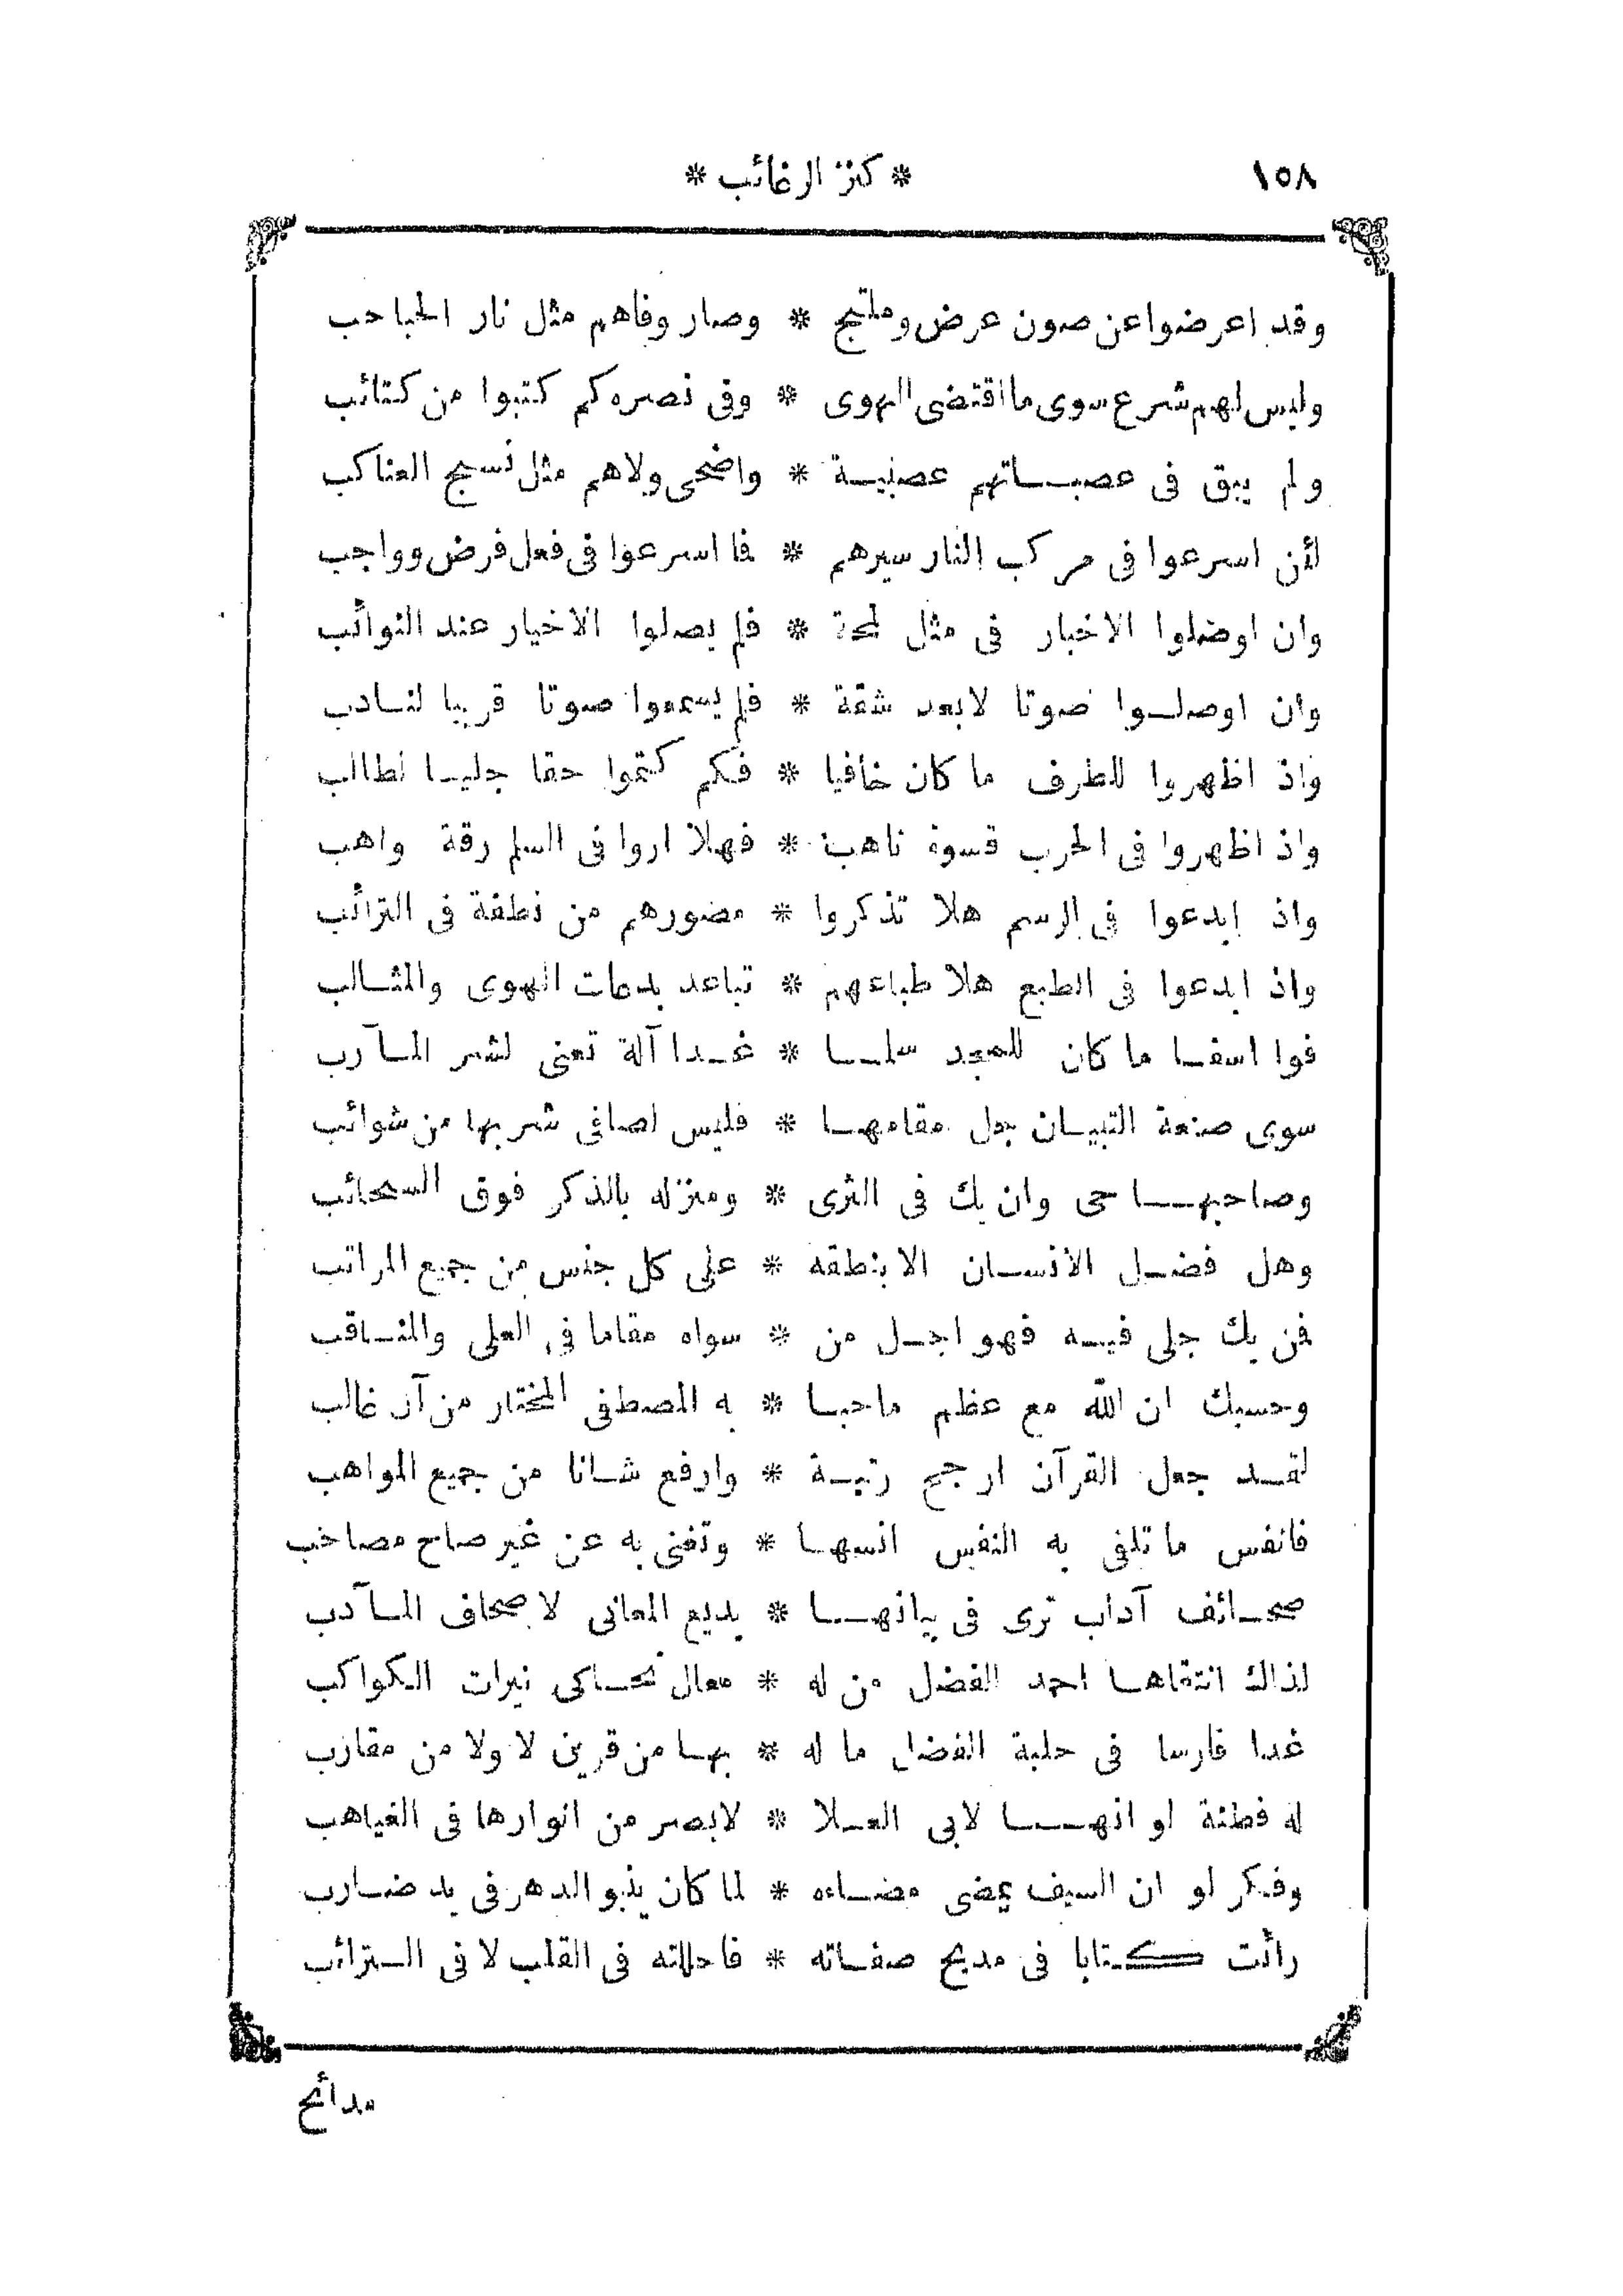 ١٥٨
* كنز الرغائب *
وقد اعرضوا عن صون عرض وملتج * وصار وفاهم مثل نار الحباحب
وليس لهم شرع سوى ما اقتضى الهوى * وفى نصره كم كتبوا من كتائب
ولم يبق فى عصباتهم عصبية * واضحى ولاهم مثل نسج العناكب
لئن اسرعوا فى مركب النار سيرهم * فا اسرعوا فى فعل فرض وواجب
وان اوصلوا الاخبار فى مثل لمحة * فلم يصلوا الاخيار عند النوائب
وان اوصلوا صوتا لابعد شقة * فلم يسمعوا صوتا قريبا لنادب
واذ اظهروا للطرف ما كان خافيا * فكم كتموا حقا جليا لطالب
واذ اظهروا فى الحرب قسوة ناهب * فهلا اروا فى السلم رقة واهب
واذ ابدعوا فى الرسم هلا تذكروا * مصورهم من نطفة فى الترائب
واذ ابدعوا فى الطبع هلا طباعهم * تباعد بدعات الهوى والمثالب
فوا اسفا ما كان للمجد سلما * غدا آلة تعنى لشر المآرب
سوى صنعة التبيان جل مقامها * فليس لصافى شربها من شوائب
وصاحبها حى وان يك فى الثرى * ومنزله بالذكر فوق السحائب
وهل فضل الانسان الا بنطقه * على كل جنس من جميع المراتب
فن يك جلى فيه فهو اجل من * سواه مقاما فى العلى والمناقب
وحسبك ان الله مع عظم ما حبا * به المصطفى المختار من آل غالب
لقد جعل القرآن ارجح رتبة * وارفع شانا من جميع المواهب
فانفس ما تلفى به النفس انسها * وتغنى به عن غير صاح مصاخب
صحائف آداب ترى فى بيانها * بديع المعانى لا صحاف المآدب
لذاك انتقاها احمد الفضل من له * معال تحاكى نيرات الكواكب
غدا فارسا فى حلبة الفضل ما له * بها من قرين لا ولا من مقارب
له فطنة لو انها لابى العلا * لابصر من انوارها فى الغياهب
وفكر لو ان السيف يمضى مضاءه * لما كان ينبو الدهر فى يد ضارب
رأت كتابا فى مديح صفاته * فاحللته فى القلب لا فى الترائب
مدائح